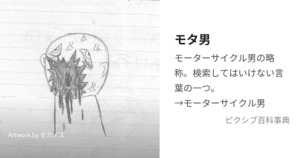 モタ男
モーターサイクル男の略
称。検索してはいけない言
葉の一つ。
→モーターサイクル男
ピクシブ百科事典
Artwork by ゼカノス